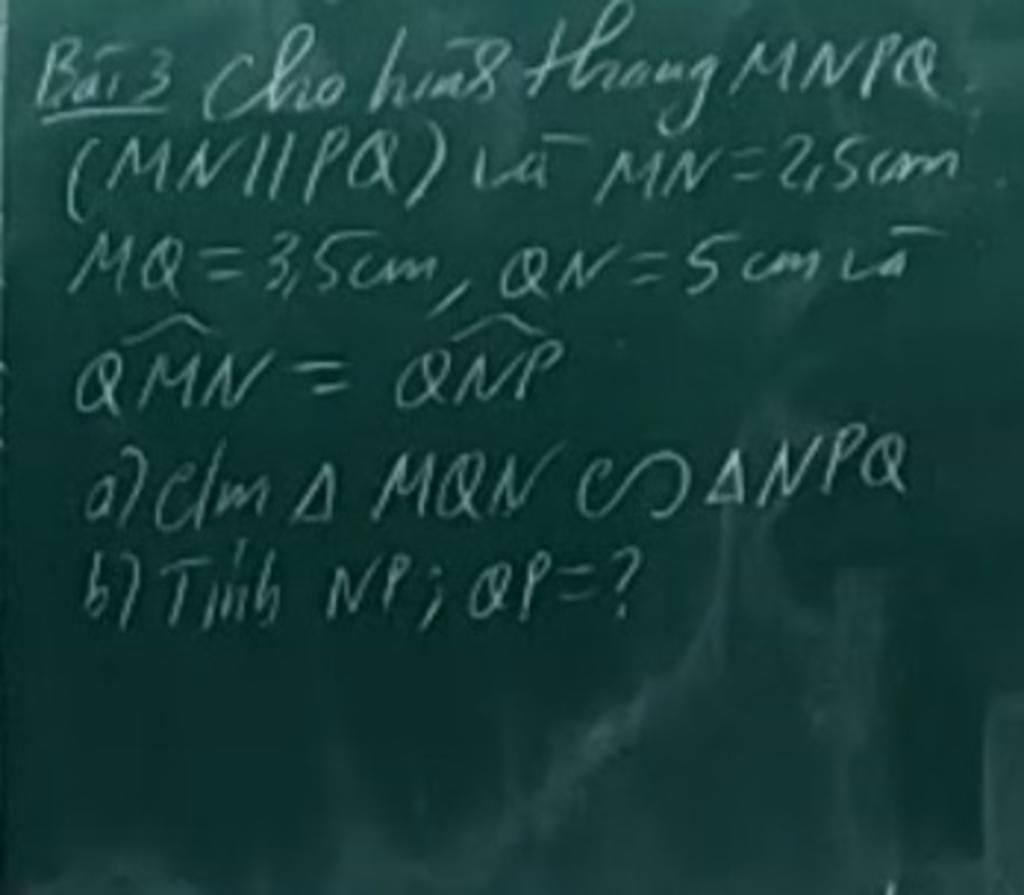 Bài 3 Cho hình thang MNPQ.
(MN//PQ) và MN = 2,5cm.
MQ = 3,5cm, QN = 5cm và
\widehat{QMN} = \widehat{QNP}
a) C/m Δ MQN ∽ ΔNPQ
b) Tính NP; QP=?